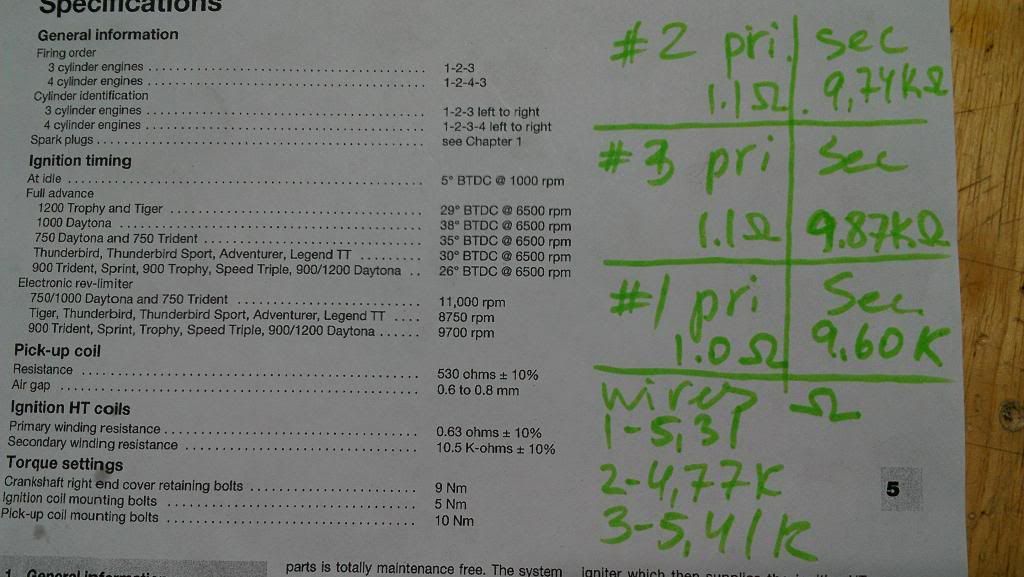 Specifications
General information
Firing order
3 cylinder engines ........ 1-2-3
4 cylinder engines ........ 1-2-4-3
Cylinder identification
3 cylinder engines ........ 1-2-3 left to right
4 cylinder engines ........ 1-2-3-4 left to right
Spark plugs ........ see Chapter 1
Ignition timing
At idle ........ 5° BTDC @ 1000 rpm
Full advance
1200 Trophy and Tiger ........ 29° BTDC @ 6500 rpm
1000 Daytona ........ 38° BTDC @ 6500 rpm
750 Daytona and 750 Trident ........ 35° BTDC @ 6500 rpm
Thunderbird, Thunderbird Sport, Adventurer, Legend TT ........ 30° BTDC @ 6500 rpm
900 Trident, Sprint, 900 Trophy, Speed Triple, 900/1200 Daytona .. 26° BTDC @ 6500 rpm
Electronic rev-limiter
750/1000 Daytona and 750 Trident ........ 11,000 rpm
Tiger, Thunderbird, Thunderbird Sport, Adventurer, Legend TT .... 8750 rpm
900 Trident, Sprint, Trophy, Speed Triple, 900/1200 Daytona ........ 9700 rpm
Pick-up coil
Resistance ........ 530 ohms ± 10%
Air gap ........ 0.6 to 0.8 mm
Ignition HT coils
Primary winding resistance ........ 0.63 ohms ± 10%
Secondary winding resistance ........ 10.5 K-ohms ± 10%
Torque settings
Crankshaft right end cover retaining bolts ........ 9 Nm
Ignition coil mounting bolts ........ 5 Nm
Pick-up coil mounting bolts ........ 10 Nm
#2 pri. sec
1.1Ω 9,74KΩ
#3 pri sec
1.1Ω 9.87KΩ
#1 pri Sec
1.0Ω 9.60K
wires Ω
1-5,31
2-4,77K
3-5,41K
5
1 General information
parts is totally maintenance free. The system
igniter which then supplies the